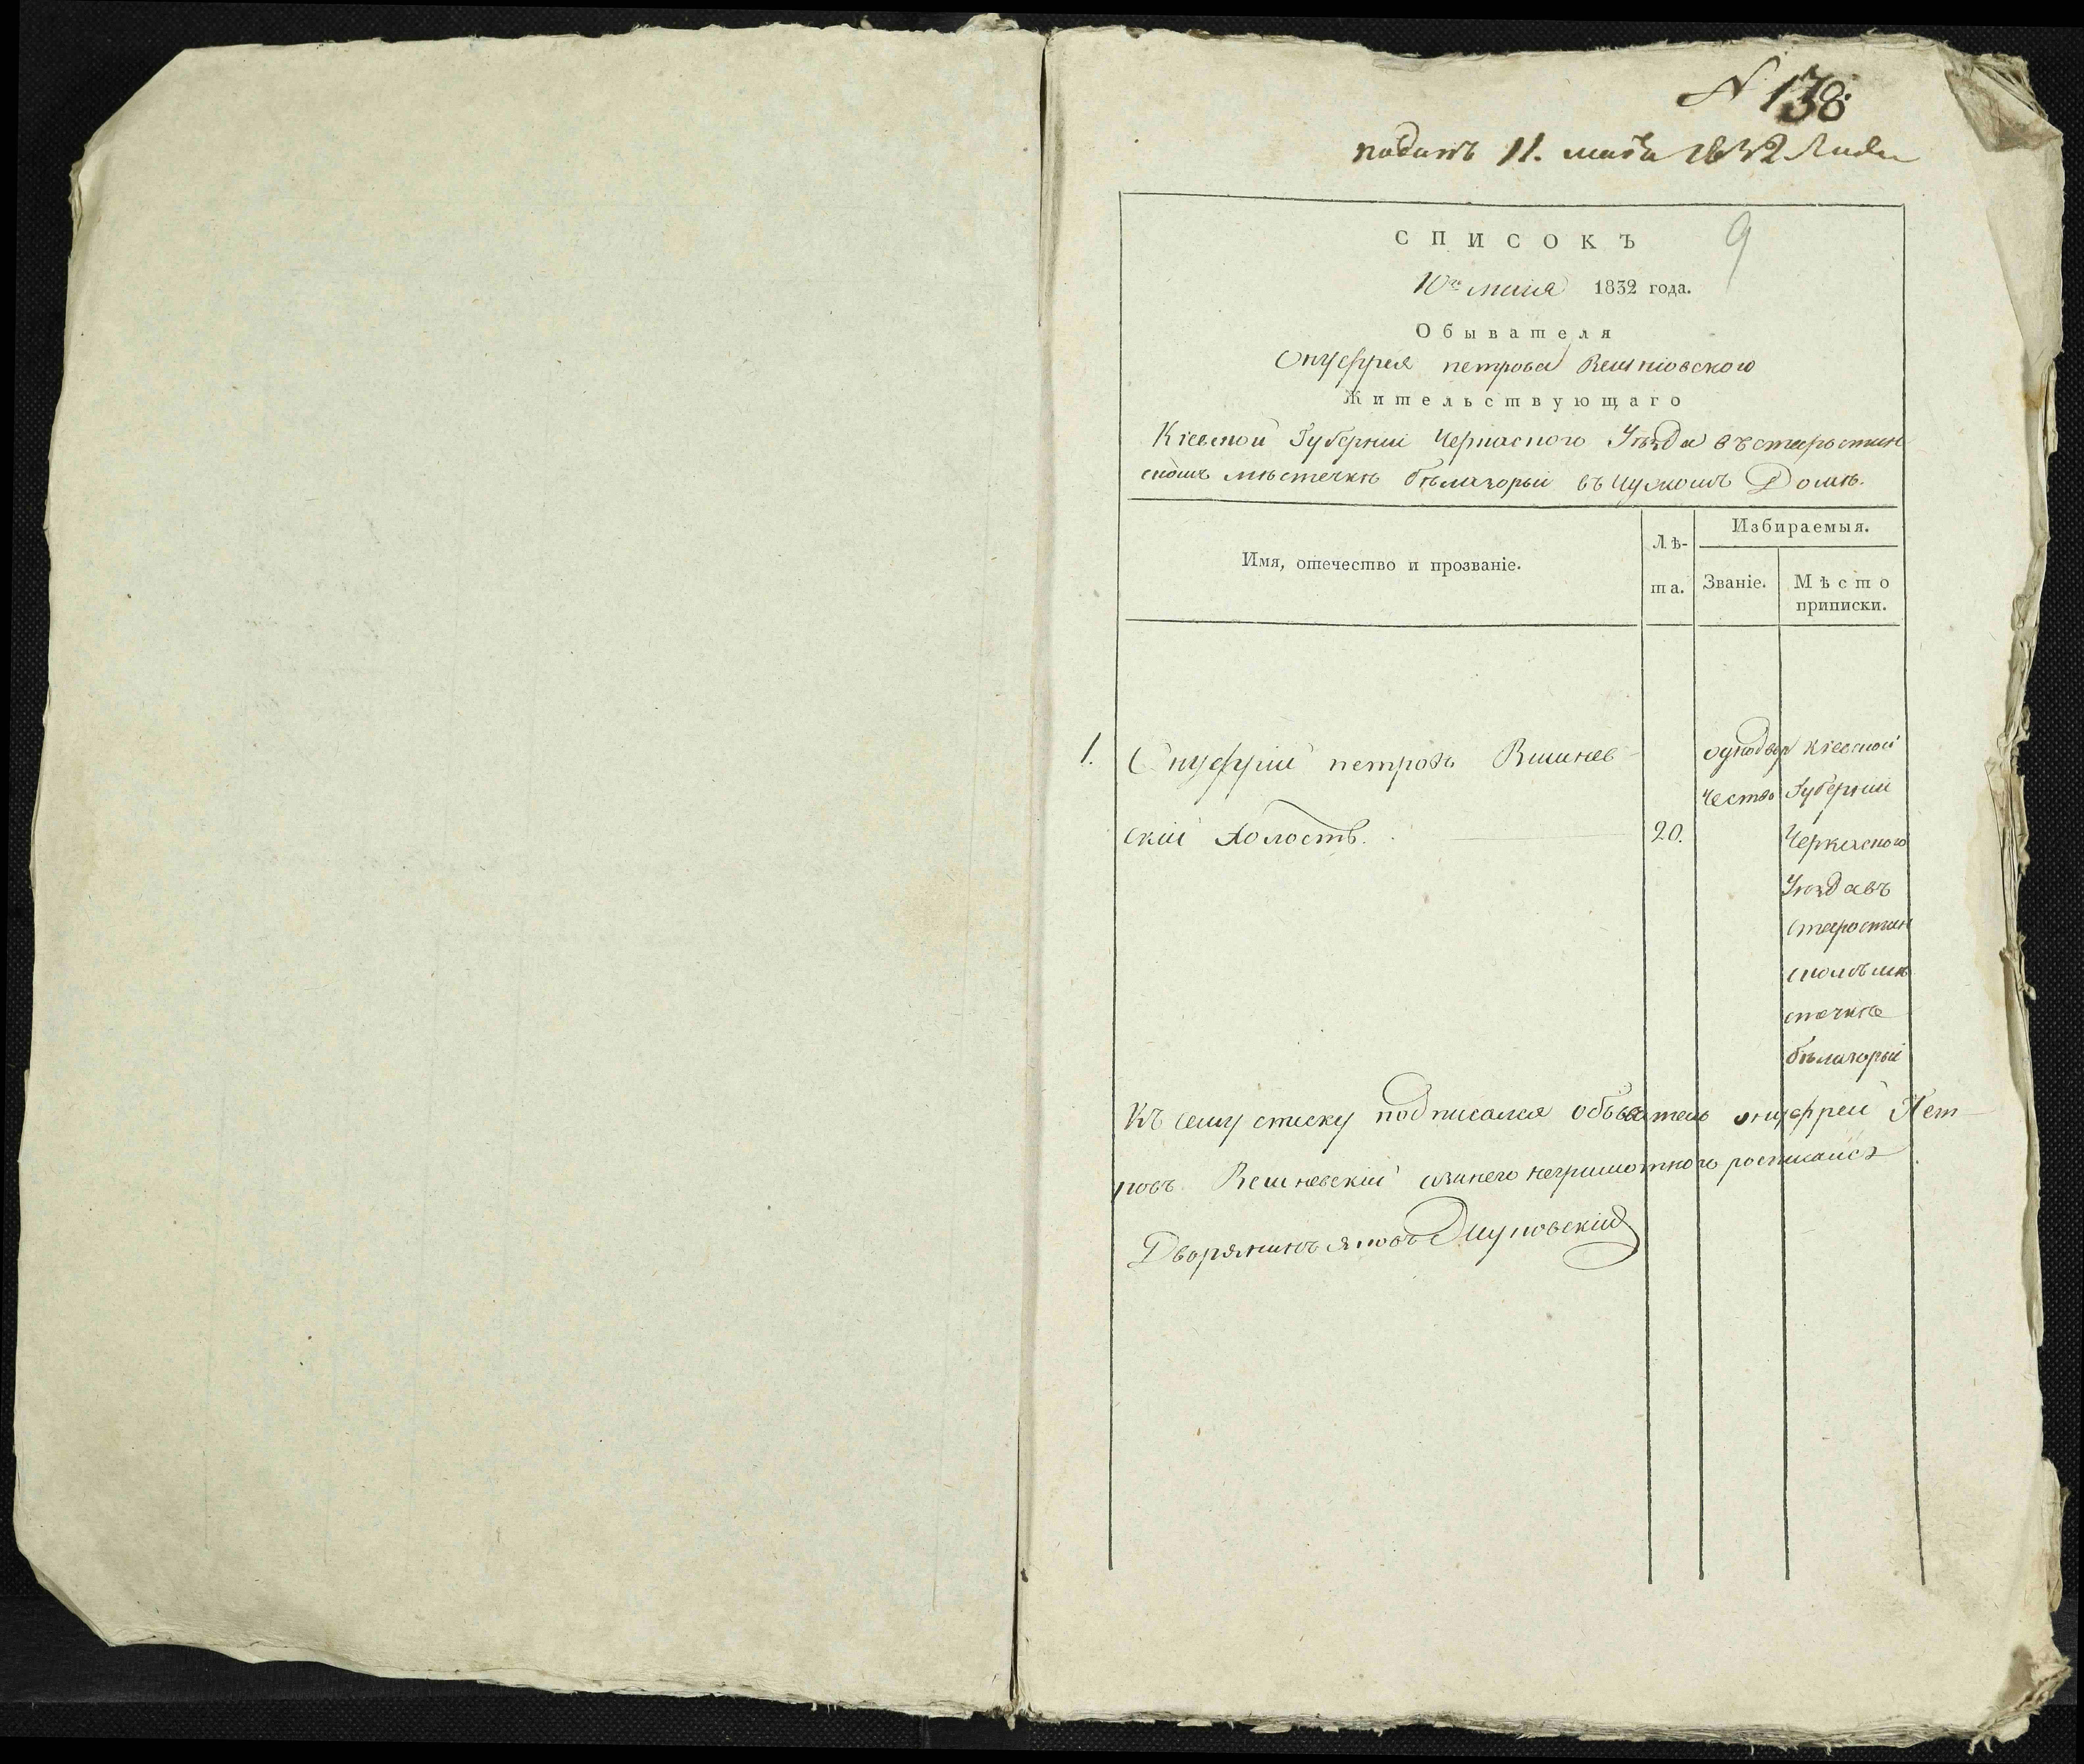 N 138
поданъ 11. маія 1832 Года
9
СПИСОКЪ
10го маія 1832 года.
Обывателя
Онуфрея петрова Вешніовского
Жительствующаго
Кіевской Губерніи Черкаского Уѣзда въ старостин
скомъ мѣстечкѣ бѣлагорьи въ чужомъ Домѣ.
Имя, отечество и прозваніе.
Лѣ-
та.
Избираемыя.
Званіе.
Мѣсто
приписки.
1. Онуфрій петровъ Вишнев
скій Холостъ.
20.
однодвор
чество
Кіевской
Губерніи
Черкаского
Уѣзда въ
старостин
скомъ мѣ
стечкѣ
бѣлагорьи
Къ сему списку подписался обыватель онуфрей Пет
ровъ Вешневскій занего неграмотного росписался
Дворянинъ яковъ